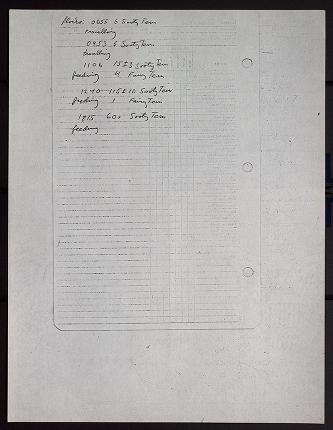 0655 6 Sooty Tern
travelling
0953 6 Sooty Tern
travelling
1104 15±3 Sooty Tern
feeding 4 Fairy Tern
1240 115±10 Sooty Tern
feeding 1 Fairy Tern
1815 60± Sooty Tern
feeding